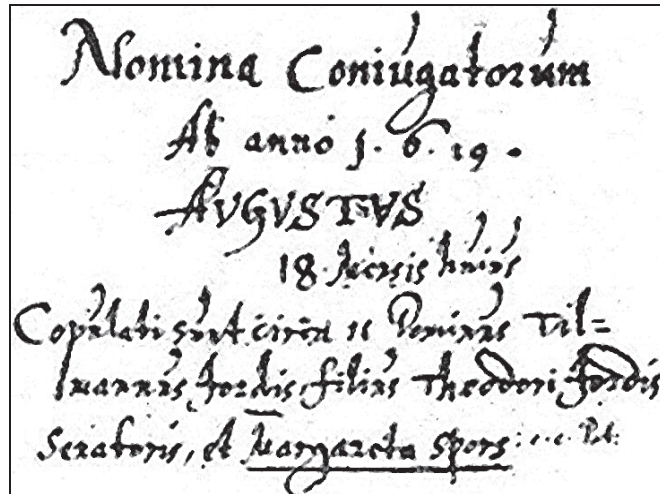 Nomina Coniugatorum
Ab anno 1. 6. 19.
AUGUSTUS
18. Mensis huius
Copulati sunt circa 11 Dominus Til=
mannus Jordis, filius Theodori Jordis
Senatoris, et Margareta Spors